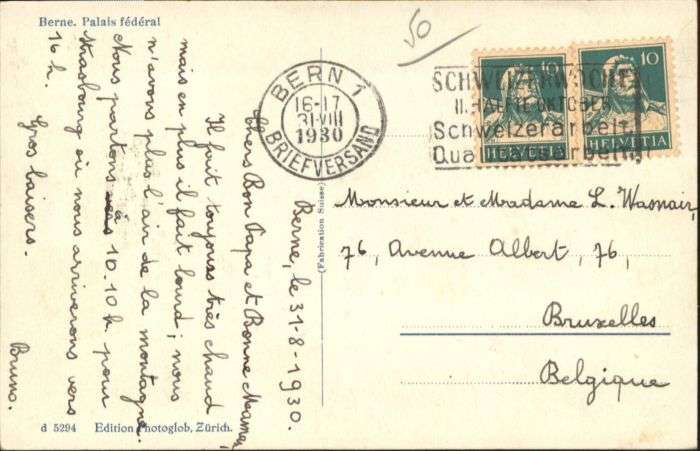 Berne. Palais fédéral
50
BERN 1
16-17
31 VIII
1930
BRIEFVERSAND
SCHWEIZERWOCHE
II. HÄLFTE OKTOBER
Schweizerarbeit
Qualitätsarbeit
10
10
HELVETIA
HELVETIA
Berne, le 31-8-1930.
Chers Bon Papa et Bonne Maman,
Il fait toujours très chaud
mais en plus il fait lourd; nous
n'avons plus l'air de la montagne.
Nous partons à 10.10 h pour
Strasbourg où nous arriverons vers
16 h.
Gros baisers.
Bruno.
(Fabrication Suisse)
Monsieur et Madame L. Wasnair,
76, Avenue Albert, 76,
Bruxelles
Belgique
d 5294 Edition Photoglob, Zürich.